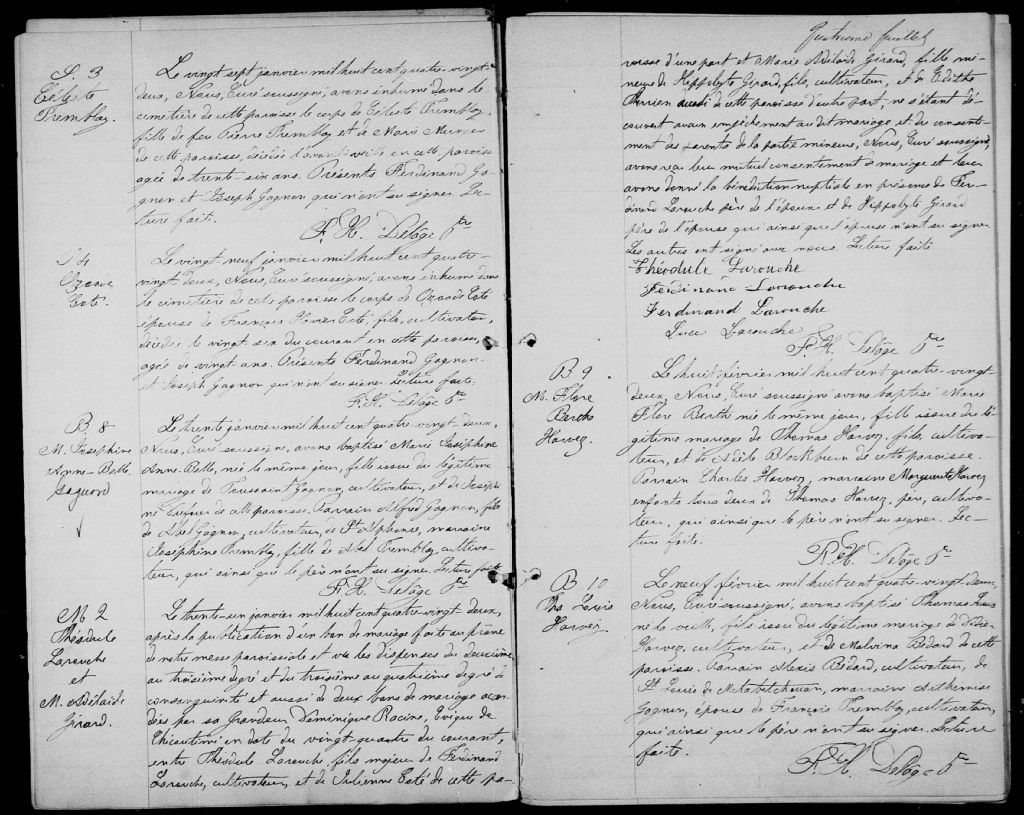 S. 3
Céleste
Tremblay.
Le vingt sept janvier mil huit cent quatre-vingt-
deux, Nous, Curé soussigné, avons inhumé dans le
cimetière de cette paroisse le corps de Céleste Tremblay,
fille de feu Pierre Tremblay et de Marie
de cette paroisse, décédée l'avant-veille en cette paroisse
agée de trente-six ans. Présents Ferdinand Ga-
gnon et Joseph Gagnon qui n'ont su signer. Lec-
ture faite.
F. X. Delâge Ptre
S 4
Ozaáde
Coté.
Le vingt neuf janvier mil huit cent quatre-
vingt-deux, Nous, Curé soussigné, avons inhumé dans
le cimetière de cette paroisse le corps de Ozaáde Coté
épouse de François Xavier Coté, fils, cultivateur,
décédée le vingt six du courant en cette paroisse,
agée de vingt ans. Présents Ferdinand Gagnon
et Joseph Gagnon qui n'ont su signer. Lecture faite.
F. X. Delâge Ptre
B 8
M. Josephine
Anne-Belle
Gagnon
Le trente janvier mil huit cent quatre-vingt-deux,
Nous, Curé soussigné, avons baptisé Marie Josephine
Anne-Belle, née le même jour, fille issue du légitime
mariage de Toussaint Gagnon, cultivateur, et de Josephi-
ne de cette paroisse. Parrain Alfred Gagnon, fils
de Abel Gagnon, cultivateur, de St Alphonse, marraine
Josephine Tremblay, fille de Abel Tremblay, cultiva-
teur, qui ainsi que le père n'ont su signer. Lecture faite
F. X. Delâge Ptre
M 2
Théodule
Larouche
et
M. Adélaïde
Girard.
Le trente-un janvier mil huit cent quatre-vingt deux,
après la publication d'un ban de mariage faite au prône
de notre messe paroissiale et vu les dispenses du deuxième
au troisième degré et du troisième au quatrième degré de
consanguinité et aussi de deux bans de mariage accor-
dées par sa Grandeur Dominique Racine, Evêque de
Chicoutimi en date du vingt-quatre du courant
entre Théodule Larouche, fils majeur de Ferdinand
Larouche, cultivateur, et de Julienne Coté de cette pa-
Quatrième feuillet
roisse d'une part et Marie Adélaïde Girard, fille mi-
neure de Hippolyte Girard, fils, cultivateur, et de Edithe
Therrien aussi de cette paroisse d'autre part, ne s'étant dé-
couvert aucun empêchement au dit mariage et du consente-
ment des parents de la partie mineure, Nous, Curé soussigné,
avons reçu leur mutuel consentement de mariage et leur
avons donné la bénédiction nuptiale en présence de Fer-
dinand Larouche père de l'époux et de Hippolyte Girard
père de l'épouse qui ainsi que l'épouse n'ont su signer.
Les autres ont signé avec nous. Lecture faite
Théodule Larouche
Ferdinand Larouche
Ferdinand Larouche
Luce Larouche
F. X. Delâge Ptre
B 9
M. Flore
Berthe
Harvez
Le huit février mil huit cent quatre-vingt-
deux, Nous, Curé soussigné avons baptisé Marie
Flore Berthe née le même jour, fille issue du lé-
gitime mariage de Thomas Harvez, fils, cultiva-
teur, et de Adèle Blackburn de cette paroisse.
Parrain Charles Harvez, marraine Marguerite Harvez
enfants tous deux de Thomas Harvez, père, cultiva-
teur, qui ainsi que le père n'ont su signer. Lec-
ture faite.
F. X. Delâge Ptre
B 10
Ths Louis
Harvez
Le neuf février mil huit cent quatre-vingt deux,
Nous, Curé soussigné, avons baptisé Thomas Louis
né la veille, fils issu du légitime mariage de
Harvez, cultivateur, et de Malvina Bédard de cette
paroisse. Parrain Alexis Bédard, cultivateur, de
St Louis de Metabetchouan, marraine Arthemise
Gagnon, épouse de François Tremblay, cultivateur,
qui ainsi que le père n'ont su signer. Lecture
faite.
F. X. Delâge Ptre